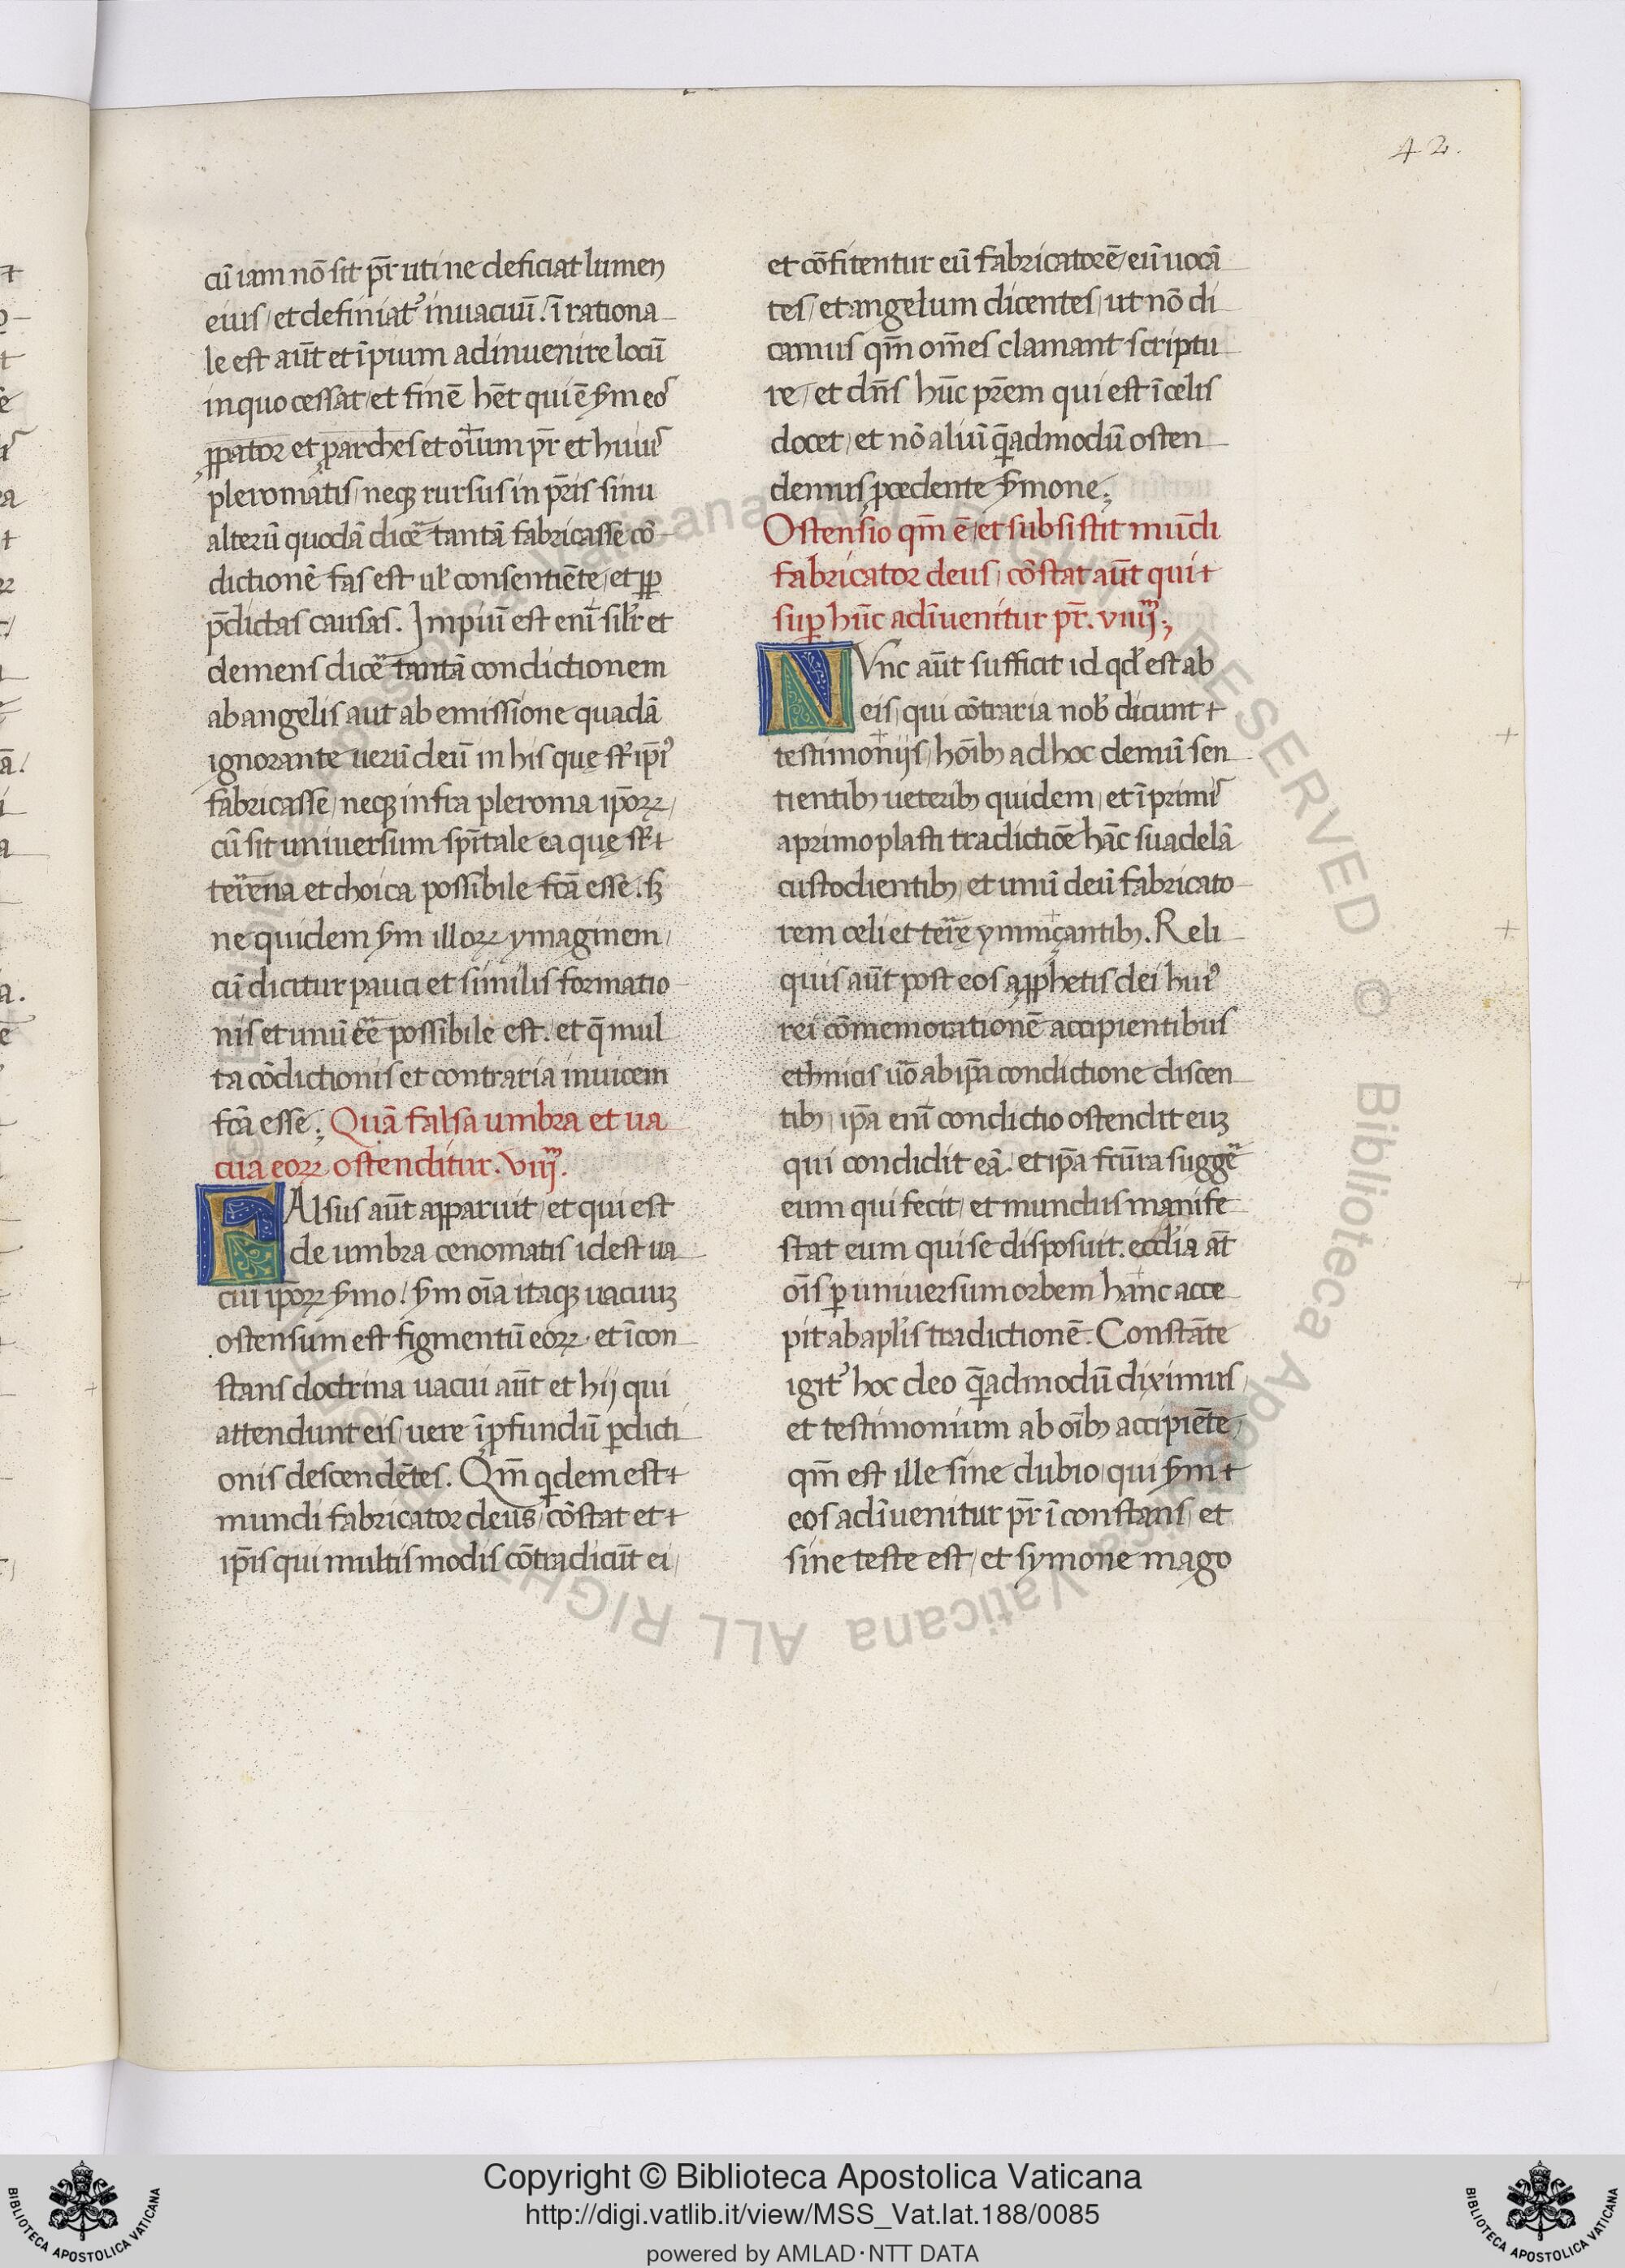 42.
cū iam nō sit pr̄ uti ne deficiat lumen
eius / et definiat᷒ in uacuū. / ī rationa-
le est aūt et īpium adinuenire locū
in quo cessat / et finē hēt qui ē s̄m eos
ppator et parches et oīum pr̄ et huius
pleromatis / neqꝫ rursus in pr̄is sinu
alterū quodā dicē tantā fabricasse cō-
dictionē fas est ul̄ consentiēte / et ꝓꝑ
p̄dictas causas. Impiū est enī sil̄r et
demens dicē tantā condictionem
ab angelis aut ab emissione quadā
ignorante uerū deū in his quę s̄t ip̄iꝰ
fabricasse / neqꝫ infra pleroma ip̄oꝝ /
cū sit uniuersum sp̄itale ea quę s̄t
terrena et choica possibile fcā esse. sꝫ
ne quidem s̄m illoꝝ ymaginem /
cū dicitur pauci et similis formatio-
nis et unū eē possibile est. et q̄ mul
ta cōdictionis et contraria inuicem
fcā esse; Quā falsa umbra et ua
cua eoꝝ ostenditur. VIII.
FAlsus aūt apparuit / et qui est
de umbra cenomatis id est ua-
cui ip̄oꝝ s̄mo / s̄m oīa itaqꝫ uacuuꝫ
ostensum est figmentū eoꝝ. et īcon-
stans doctrina uacui aūt et hij qui
attendunt eis / uere ī ꝓfundū ꝑdicti-
onis descendētes. Qm̄ qͥdem est
mundi fabricator deus / cōstat et
ip̄is qui multis modis cōtradicūt ei /
et cōfitentur eū fabricatorē / eū uocā-
tes / et angelum dicentes / ut nō di
camus qm̄ om̄es clamant scriptu-
re / et dn̄s hūc pr̄em qui est ī celis
docet / et nō aliuī q̄admodū osten-
demus pcedente s̄mone;
Ostensio qm̄ ē / et subsistit mūdi
fabricator deus / cōstat aūt qui
suꝑ hūc adīuenitur pr̄. VIIII;
NVnc aūt sufficit id qd̄ est ab
eis / qui cōtraria nob̄ dicunt
testimonijs / hoīb; ad hoc demū sen-
tientib; ueterib; quidem / et ī primis
a primoplasti tradictiōe hāc suadelā
custodientib; et unū deū fabricato-
rem celi et terrę ymnięantib;. Reli-
quis aūt post eos apphetis dei huiꝰ
rei cōmemorationē accipientibus
ethnicis ūo ab ip̄a condictione discen-
tib; ip̄a enī condictio ostendit euꝫ
qui condidit eā. et ip̄a fcūra suggē
eum qui fecit / et mundus manife-
stat eum qui se disposuit. eccl̄ia āt
oīs ꝑ uniuersum orbem hanc acce-
pit ab apl̄is tradictionē. Constāte
igit᷒ hoc deo q̄admodū diximus /
et testimonium ab oīb; accipiēte /
qm̄ est ille sine dubio / qui s̄m
eos adīuenitur pr̄ ī constans / et
sine teste est / et symone mago
Copyright © Biblioteca Apostolica Vaticana
http://digi.vatlib.it/view/MSS_Vat.lat.188/0085
powered by AMLAD·NTT DATA
BIBLIOTECA APOSTOLICA VATICANA
BIBLIOTECA APOSTOLICA VATICANA